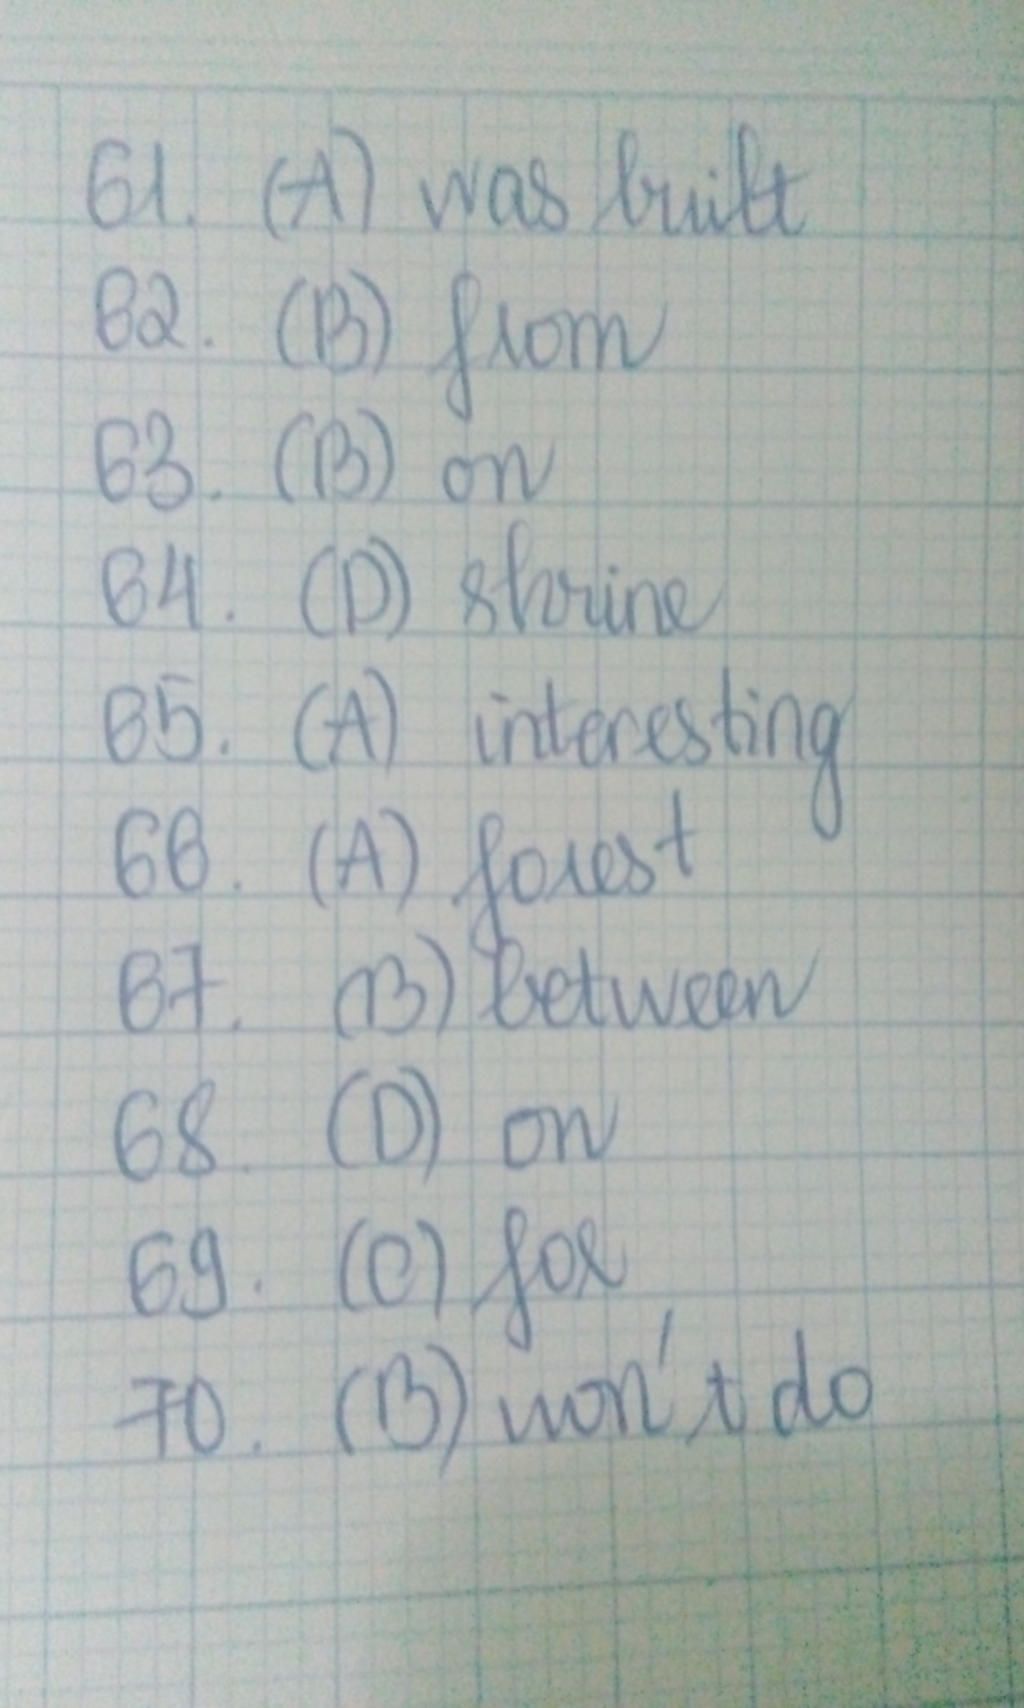 61. (A) was built
62. (B) from
63. (B) on
64. (D) shrine
65. (A) interesting
66. (A) forest
67. (B) between
68. (D) on
69. (C) for
70. (B) won't do